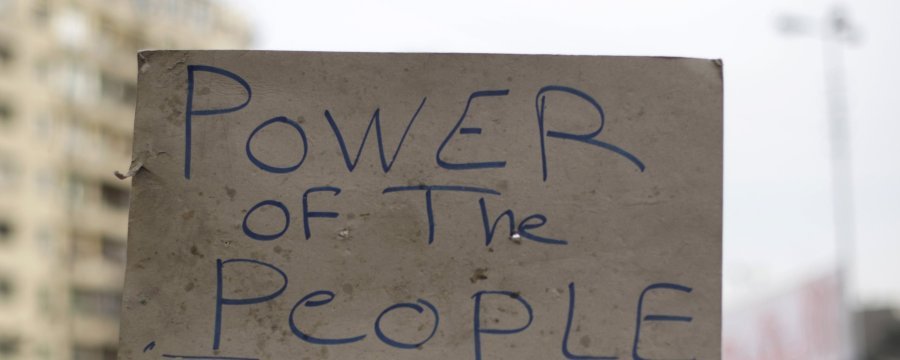 POWER
OF The
PeoPLE